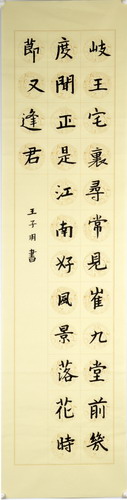 岐王宅裏尋常見崔九堂前幾
度聞正是江南好風景落花時
節又逢君
王子明書